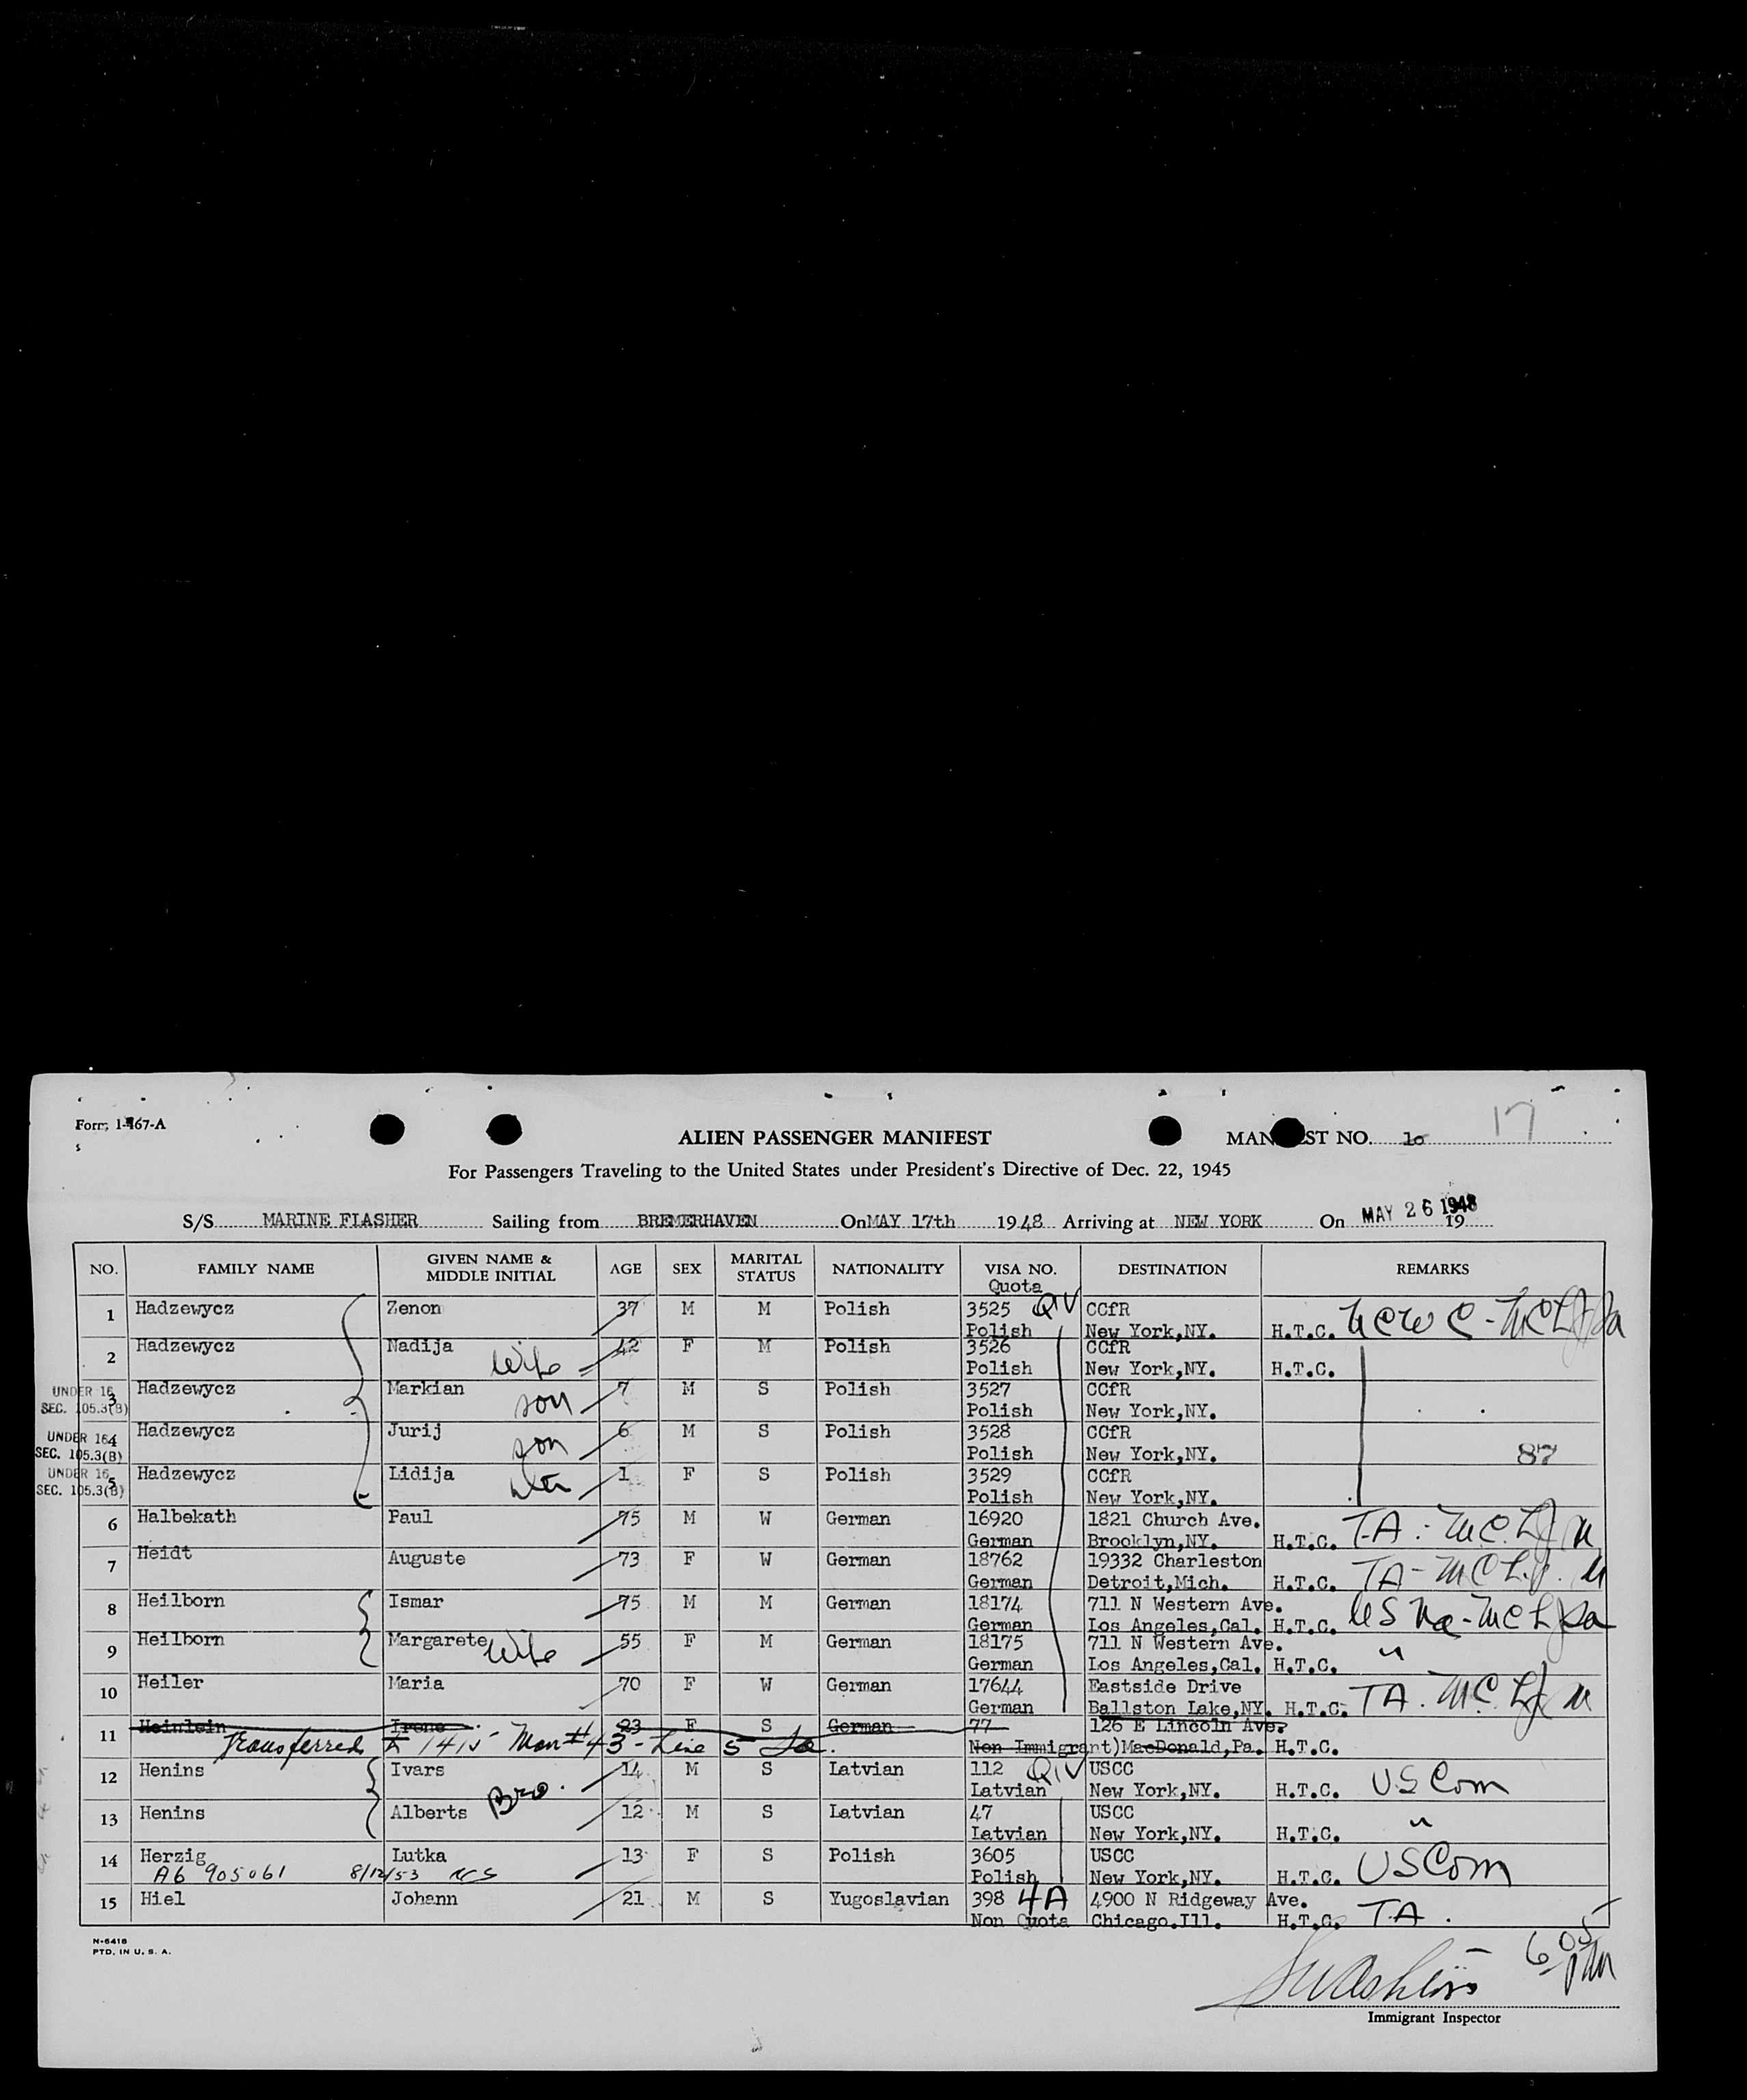 Form I-467-A
17
ALIEN PASSENGER MANIFEST MANIFEST NO. 10
For Passengers Traveling to the United States under President's Directive of Dec. 22, 1945
S/S MARINE FLASHER Sailing from BREMERHAVEN On MAY 17th 1948 Arriving at NEW YORK On MAY 26 1948 19
NO. FAMILY NAME GIVEN NAME & MIDDLE INITIAL AGE SEX MARITAL STATUS NATIONALITY VISA NO. Quota DESTINATION REMARKS
1 Hadzewycz Zenon 37 M M Polish 3525 QIV CCfR
Polish New York,NY. H.T.C.
2 Hadzewycz Nadija wife 42 F M Polish 3526 CCfR
Polish New York,NY. H.T.C.
UNDER 16 SEC. 105.3(B) 3 Hadzewycz Markian son 7 M S Polish 3527 CCfR
Polish New York,NY.
UNDER 16 SEC. 105.3(B) 4 Hadzewycz Jurij son 6 M S Polish 3528 CCfR
Polish New York,NY. 87
UNDER 16 SEC. 105.3(B) 5 Hadzewycz Lidija 1 F S Polish 3529 CCfR
Polish New York,NY.
6 Halbekath Paul 75 M W German 16920 1821 Church Ave.
German Brooklyn,NY. H.T.C. T.A.
7 Heidt Auguste 73 F W German 18762 19332 Charleston
German Detroit,Mich. H.T.C. TA
8 Heilborn Ismar 75 M M German 18174 711 N Western Ave.
German Los Angeles,Cal. H.T.C.
9 Heilborn Margarete wife 55 F M German 18175 711 N Western Ave.
German Los Angeles,Cal. H.T.C. "
10 Heiler Maria 70 F W German 17644 Eastside Drive
German Ballston Lake,NY. H.T.C. TA.
11 Heinlein Irene 23 F S German 77 126 E Lincoln Ave.
Transferred to 1415 Man # 43 - Line 5 Non Immigrant) MacDonald,Pa. H.T.C.
12 Henins Ivars 14 M S Latvian 112 QIV USCC
Latvian New York,NY. H.T.C. US Com
13 Henins Alberts Bro. 12 M S Latvian 47 USCC
Latvian New York,NY. H.T.C. "
14 Herzig Lutka 13 F S Polish 3605 USCC
A6 905061 8/12/53 Polish New York,NY. H.T.C. US Com
15 Hiel Johann 21 M S Yugoslavian 398 4A 4900 N Ridgeway Ave.
Non Quota Chicago.Ill. H.T.C. T.A.
N-6418
PTD. IN U. S. A.
605 pm
Immigrant Inspector